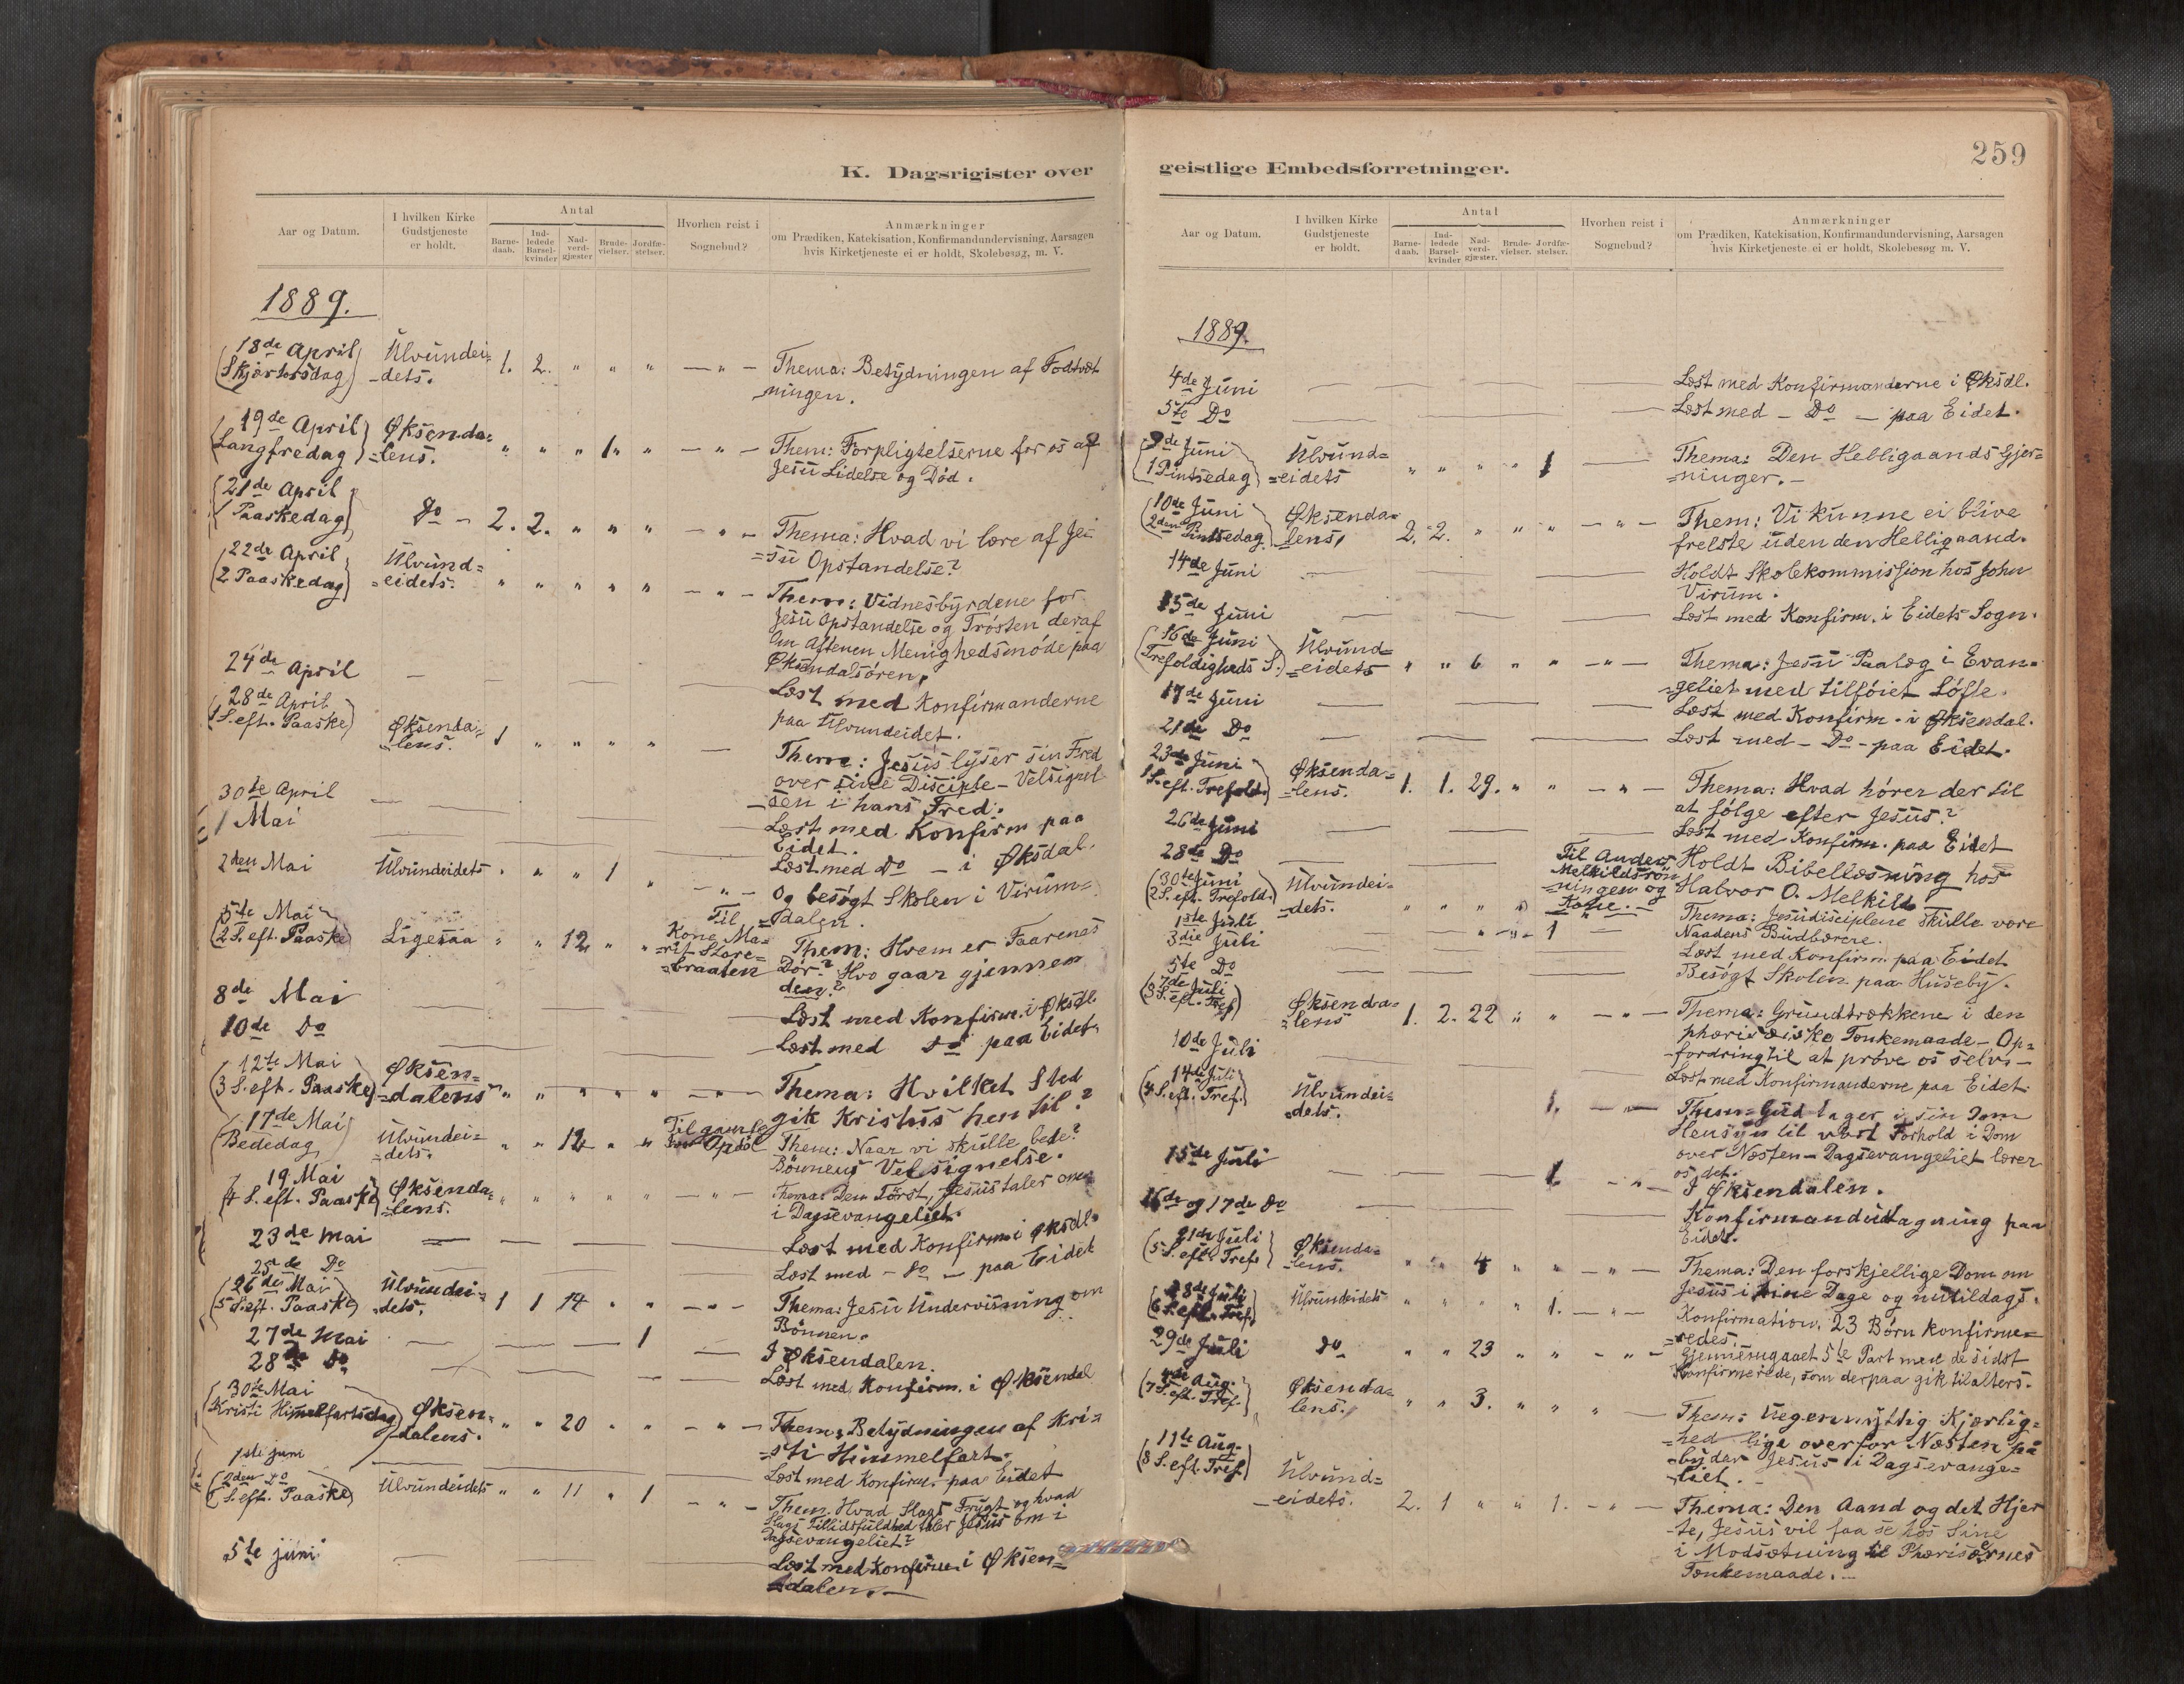 K. Dagsrigister over
Aar og Datum.
I hvilken Kirke
Gudstjeneste
er holdt.
Antal
Barne-
daab.
Ind-
ledede
Barsel-
kvinder
Nad-
verd-
gjæster
Brude-
vielser.
Jordfæ-
stelser.
Hvorhen reist i
Sognebud?
Anmærkninger
om Prædiken, Katekisation, Konfirmandundervisning, Aarsagen
hvis Kirketjeneste ei er holdt, Skolebesøg, m. V.
1889.
18de April
(Skjærtorsdag)
Ulvundei=
=dets.
1. 2. " " " — " —
Thema: Betydningen af Fodtvæt
ningen.
19de April
Langfredag
Øksenda=
=lens.
" " " 1 " — " —
Them: Forpligtelserne for os af
Jesu Lidelse og Död.
21de April
1 Paaskedag
Do — 2. 2. " " " — " —
Thema: Hvad vi lære af Je=
=su Opstandelse?
22de April
2 Paaskedag
Ulvund=
=eidets.
" " " " " — " —
Them: Vidnesbyrdene for
Jesu Opstandelse og Trösten deraf
Om Aftenen Menighedsmöde paa
Øksendalsören.
24de April
Læst med Konfirmanderne
paa Ulvundeidet.
28de April
1 S. eft. Paaske
Øksenda=
=lens.
1 " " " " —
Thema: Jesus lyser sin Fred
over sine Disciple — Velsignel
sen i hans Fred.
30te April
Læst med Konfirm paa
Eidet.
1 Mai
Læst med Do — i Øksdal.
2den Mai
Ulvundeidets " " " 1 " — " —
Og besögt Skolen i Virum=
=dalen.
5te Mai
(2 S. eft. Paaske)
Ligesaa " " 12 " "
Til
Kone Ma=
=rit Store=
=braaten
Them: Hvem er Faarenes
Dör? Hvo gaar gjennem
den?
8de Mai
Læst med Konfirm. i Øksdl.
10de Do
Læst med Do paa Eidet.
12te Mai
(3 S. eft. Paaske)
Øksen=
=dalens " " " " " — " —
Thema: Hvilket Sted
gik Kristus hen til?
17de Mai
Bededag
Ulvundei=
=dets.
" " 12 " "
Them: Naar vi skulle bede?
Bönnens Velsignelse.
19 Mai
4 S. eft. Paaske
Øksenda=
=lens.
" " " " " — " —
Thema: Den Törst, Jesus taler om
i Dagsevangeliet.
23de Mai
Læst med Konfirm i Øksdl.
25de Do
Læst med — Do — paa Eidet
26de Mai
5 S. eft. Paaske
Ulvundei=
=dets.
1 1 14 " " — " —
Thema: Jesu Undervisning om
Bönnen.
27de Mai
1
I Øksendalen.
28de Do
Læst med Konfirm. i Øksendal
30te Mai
Kristi Himmelfartsdag
Øksen=
=dalens.
" " 20 " " — " —
Them: Betydningen af Kri=
=sti Himmelfart.
1ste juni
Læst med Konfirm. paa Eidet
2den Do
S. eft. Paaske
Ulvundeidets " " 11 " 1 — " —
Them. Hvad Slags Frygt og hvad
Slags Tillidsfuldhed taler Jesus om i
Dagsevangeliet?
5te juni
Læst med Konfirm. i Øksen=
=dalen. —
geistlige Embedsforretninger.
259
Aar og Datum.
I hvilken Kirke
Gudstjeneste
er holdt.
Antal
Barne-
daab.
Ind-
ledede
Barsel-
kvinder
Nad-
verd-
gjæster.
Brude-
vielser.
Jordfæ-
stelser.
Hvorhen reist i
Sognebud?
Anmærkninger
om Prædiken, Katekisation, Konfirmandundervisning, Aarsagen
hvis Kirketjeneste ei er holdt, Skolebesøg m. V.
1889.
4de Juni
Læst med Konfirmanderne i Øksdl.
5te Do
Læst med — Do — paa Eidet.
9de Juni
1 Pintsedag
Ulvund=
=eidets
" " " " 1 —
Thema: Den Helligaands Gjer=
=ninger. —
10de Juni
2den Pintsedag
Øksenda=
lens,
2. 2. " " " — " —
Them: Vi kunne ei blive
frelste uden den Helligaand.
14de Juni
Holdt Skolekommission hos John
Virum.
15de Juni
Læst med Konfirm. i Eidets Sogn.
16de Juni
Trefoldigheds S.
Ulvund=
=eidets " " 6 " " — " —
Thema: Jesu Paalæg i Evan=
=geliet med tilföiet Löfte.
17de Juni
Læst med Konfirm. i Øksendal.
21de Do
Læst med — Do — paa Eidet.
23de Juni
1 S. eft. Trefold.
Øksenda=
=lens.
1. 1. 29. " " — " —
Thema: Hvad hörer der til
at fölge efter Jesus?
26de Juni
Læst med Konfirm. paa Eidet
28de Do
Til Anders
Melkildsrön
=ningen og
Kone. —
Holdt Bibellæsning hos
Halvor O. Melkild
30te Juni
(2 S. eft. Trefold.)
Ulvundei=
=dets.
" " " "
Thema: Jesu disciplene skulle være
Naadens Budbærere.
1ste Juli
" 1 —
3die Juli
Læst med Konfirm. paa Eidet
5te Do
Besögt Skolen paa Huseby.
7de Juli
3 S. eft. Tref.
Øksenda=
=lens
1. 2. 22 " " — " —
Thema: Grundtrækkene i den
phariseiske Tænkemaade — Op=
=fordring til at pröve os selv. —
10de Juli
Læst med Konfirmanderne paa Eidet.
14de Juli
(4 S. eft. Tref.)
Ulvundei=
=dets.
1. — " —
Them: Gud tager i sin Dom
Hensyn til vort Forhold i Dom
over Næsten — Dagsevangeliet lærer
os det.
15de Juli
1. — " —
I Øksendalen.
16de og 17de Do
Konfirmandudtagning paa
Eidet.
21de Juli
(5 S. eft. Tref.
Øksenda=
=lens.
" " 4 " " — " —
Thema: Den forskjellige Dom om
Jesus i hine Dage og nutildags.
28de Juli
(6 S. eft. Tref.)
Ulvundeidets " " " " 1. — " —
Konfirmation. 23 Børn konfirme=
=redes.
29de Juli
Do " " 23 " " — " —
Gjennemgaaet 5te Part med de sidst
Konfirmerede, som derpaa gik til alters.
4de Aug.
(7 S. eft. Tref.
Øksenda=
lens.
" " 3. " " " —
Them: Uegennyttig Kjærlig=
=hed lige overfor Næsten på
=byder Jesus i Dagsevange=
=liet. —
11te Aug.
(8 S. eft. Tref.)
Ulvund=
=eidets.
2. 1 " " 1. — " —
Thema: Den Aand og det Hjer
=te, Jesus vil faa se hos Sine
i Modsætning til Pharisæernes
Tænkemaade. —